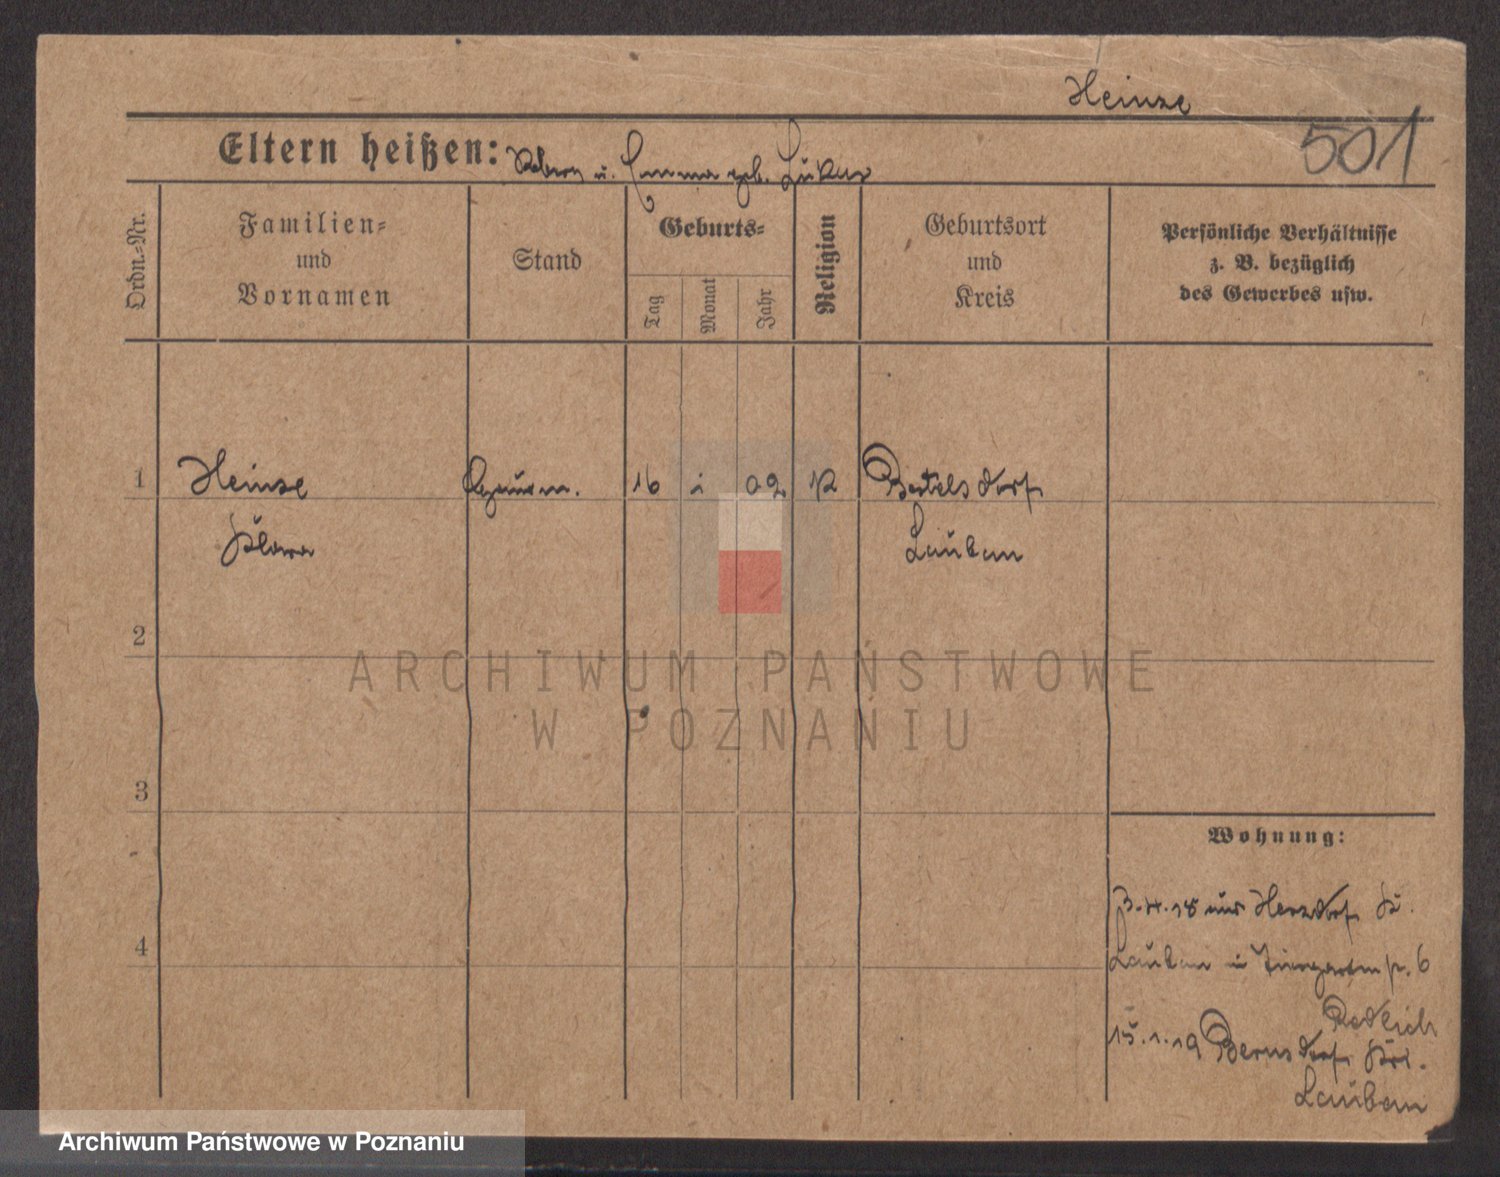 Heinze
501
Eltern heißen: u. Emma geb.
Ordn.-Nr.
Familien=
und
Vornamen
Stand
Geburts=
Tag
Monat
Jahr
Religion
Geburtsort
und
Kreis
Persönliche Verhältnisse
z. B. bezüglich
des Gewerbes usw.
1 Heinze 16 i 02 K Bertelsdorf
Klara Lauban
2
3
4
Wohnung:
3.4.18 aus Herzdorf Kr.
Lauban in Tiergarten 6
Redlich
15.1.19 Bernsdorf Kr.
Lauban
ARCHIWUM PAŃSTWOWE
W POZNANIU
Archiwum Państwowe w Poznaniu